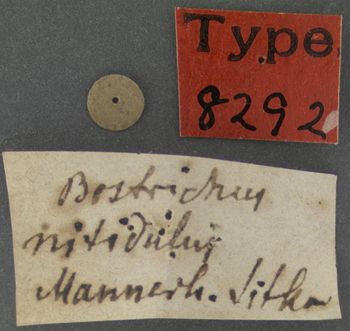 Type
8292
Bostrichus
nitidulus
Mannerh. Sitka